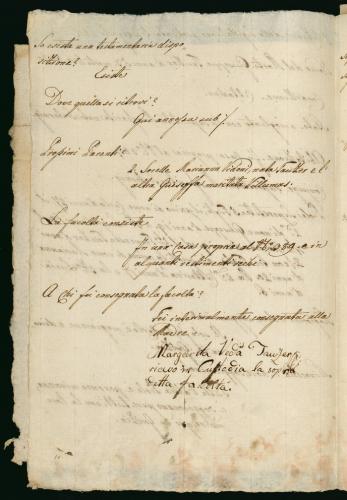 Se esiste una testamentaria dispo
sizione?
Esiste
Dove quella si ritrovi?
Qui annessa sub /.
Prossimi Parenti?
2 Sorelle Marianna Vidoni, nata Tauber e l'
altra Giuseppa maritata
La facoltà consiste
In una casa propria al N: 989. e in
alquanti vestimenti vecchi
A Chi fu consegnata la facoltà?
Fu interinalmente consegnata alla
Madre.
Margarita Veda
ricevo in Custodia la sopra
detta facoltà.